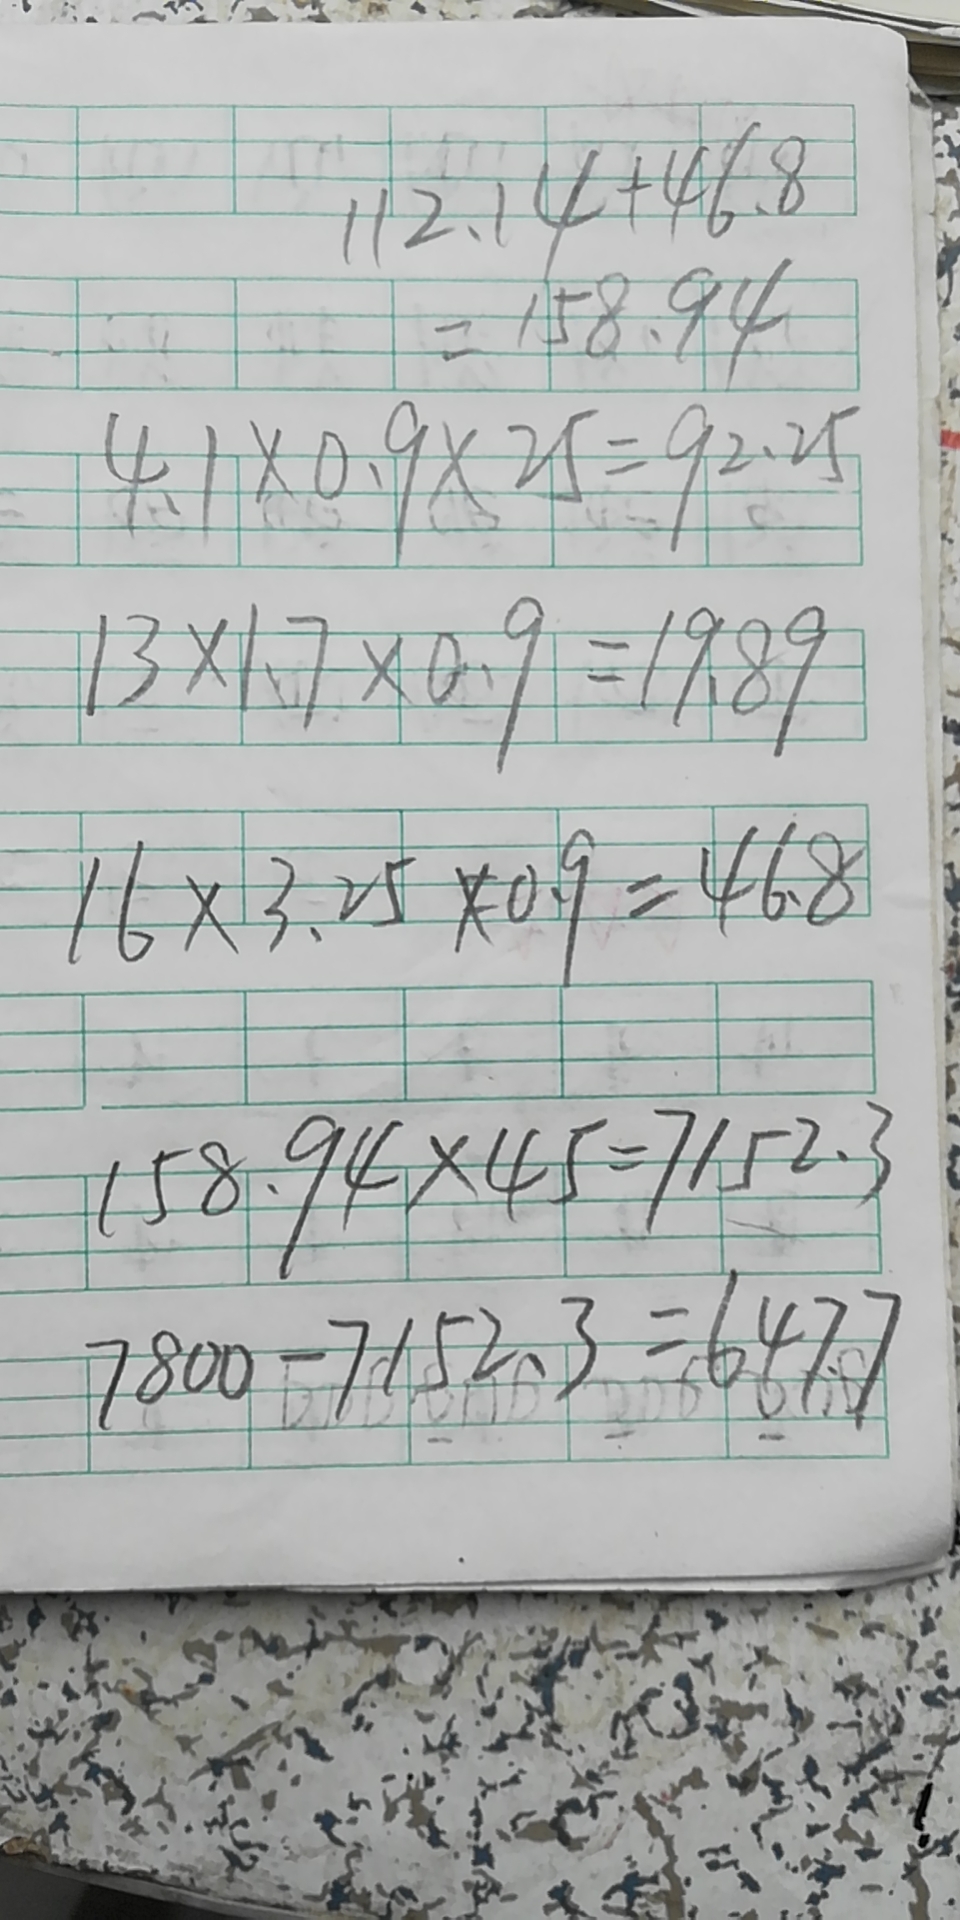 112.14+46.8
=158.94
4.1×0.9×25=92.25
13×1.7×0.9=19.89
16×3.25×0.9=46.8
158.94×45=7152.3
7800-7152.3=647.7